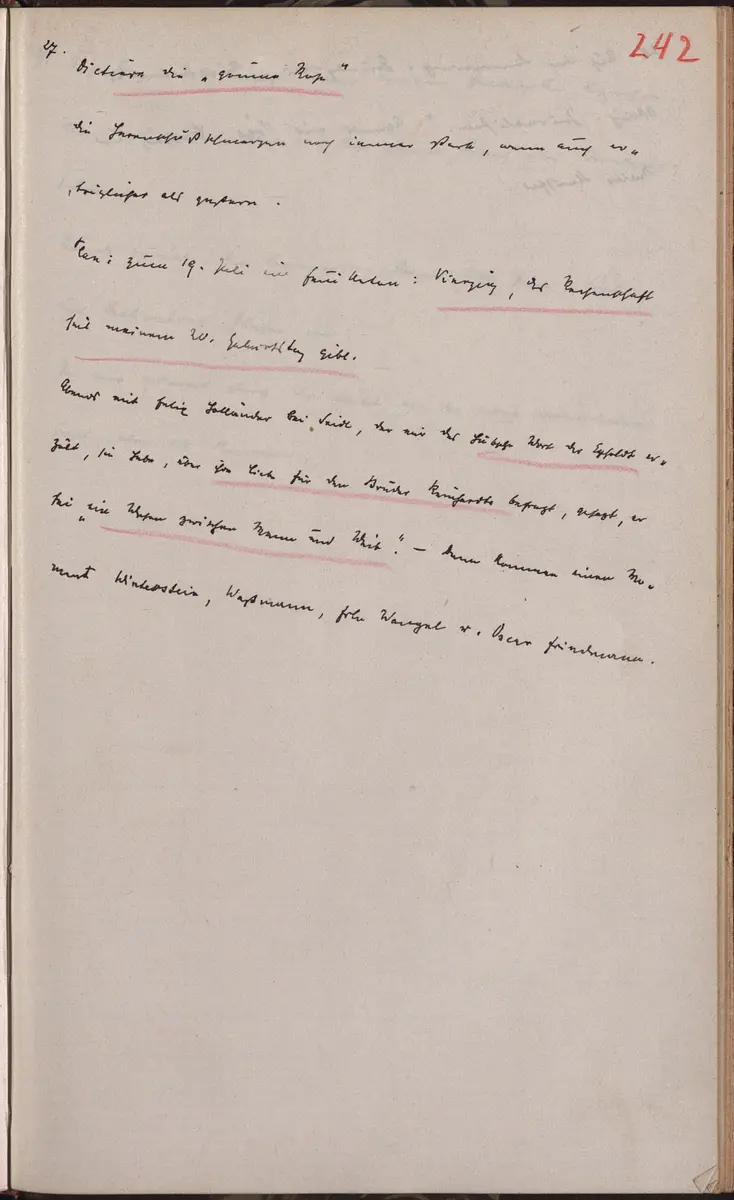 242
27.
Dictiere die „grüne Rose"
die Hexenschußschmerzen noch immer stark, wenn auch er„
träglicher als gestern.
Plan: zum 19. Juli ein Feuilleton: Vierzig, das Rechenschaft
seit meinem 20. Geburtstag gibt.
Abends mit Felix Holländer bei Seidl, der mir das hübsche Wort der Eysoldt er„
zält, sie habe, über ihre Liebe für den Bruder Reinhardts befragt, gesagt, er
sei „ein Wesen zwischen Mann und Weib". – Dann kommen einen Mo„
ment Winterstein, Waßmann, Frln Wangel u. Oscar Friedmann.